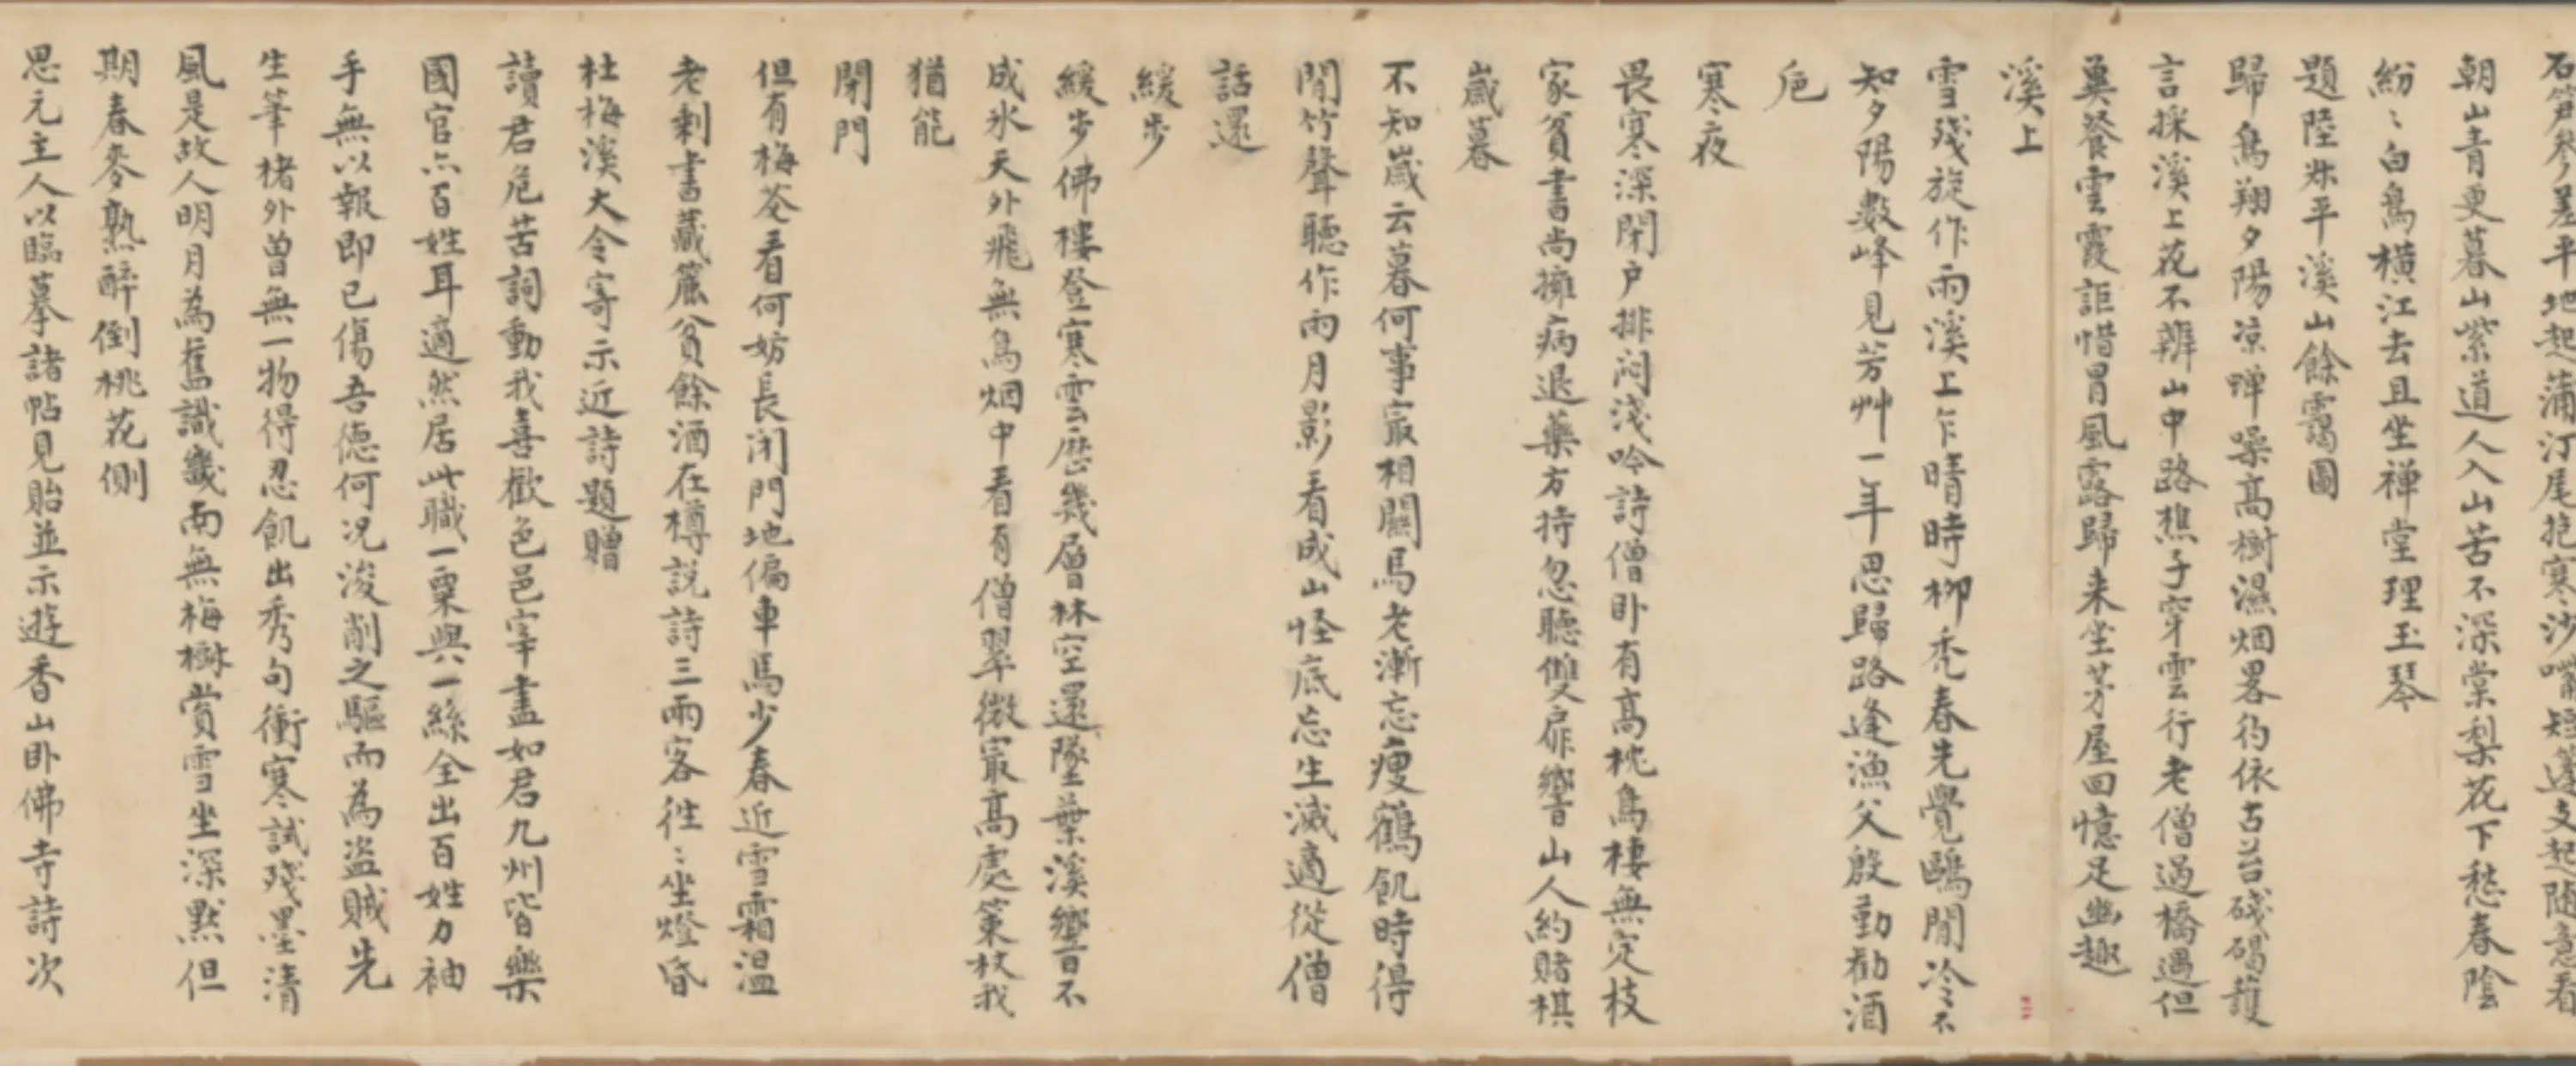 石笋參差平地起蒲汀尾抱寒沙嘴短邊支起隨意看
朝山青更暮山紫道人入山苦不深棠梨花下愁春陰
紛〻白鳥橫江去且坐禅堂理玉琴
題陸叔平溪山餘靄圖
歸鳥翔夕陽凉蟬噪髙樹濕烟畧彴依古苔磈礍護
言採溪上花不辨山中路樵子穿雲行老僧過橋遇但
奠餐雲霞詎惜冒風露歸来坐茅屋回憶足幽趣
溪上
雪殘旋作雨溪上乍晴時柳秃春先覺鷗閒冷不
知夕陽數峰見芳艸一年思歸路逢漁父殷勤勸酒
巵
寒夜
畏寒深閉户排悶淺吟詩僧卧有髙枕鳥棲無定枝
家貧書尚擁病退藥方持忽聽雙扉響山人約賭棋
歲暮
不知歲云暮何事寂相關馬老漸忘瘦鶴飢時得
閒竹聲聽作雨月影看成山怪底忘生滅適從僧
話還
緩步
緩步佛樓登寒雲歷幾層林空還墜葉溪響不
成氷天外飛無鳥烟中看有僧翠微寂髙處策杖我
猶能
閉門
但有梅花看何妨長閉門地偏車馬少春近雪霜温
老剩書藏簏貧餘酒在樽説詩三兩客徃〻坐燈昏
杜梅溪大令寄示近詩題贈
讀君危苦詞動我喜歡色邑宰盡如君九州皆樂
國官亦百姓耳適然居此職一粟與一絲全出百姓力袖
手無以報即已傷吾德何况浚削之驅而為盜賊先
生筆楮外曽無一物得忍飢出秀句衝寒試殘墨清
風是故人明月為舊識幾兩無梅樹賞雪坐深黙但
期春麥熟醉倒桃花側
思元主人以臨摹諸帖見貽並示遊香山卧佛寺詩次